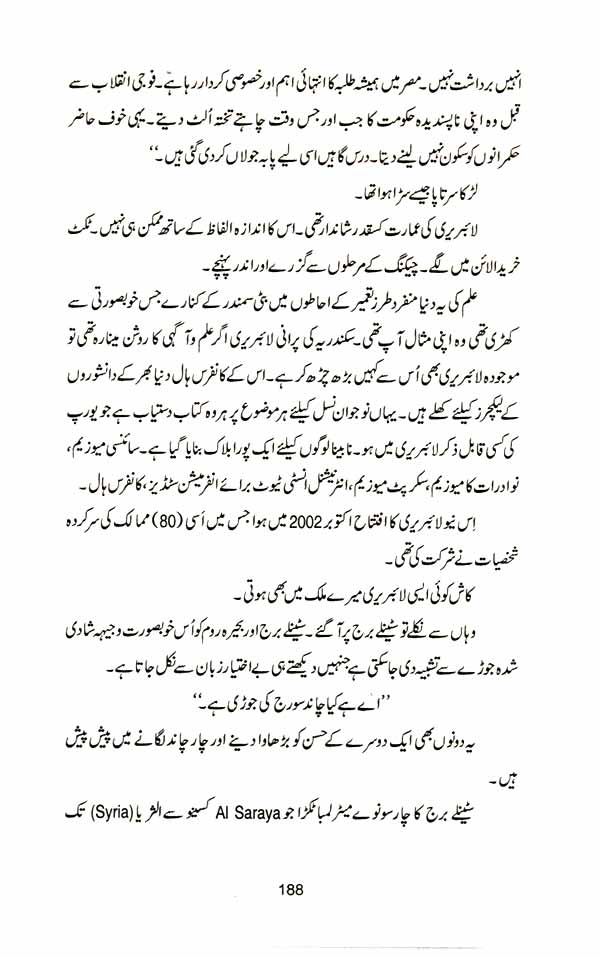 انہیں برداشت نہیں۔ مصر میں ہمیشہ طلبہ کا انتہائی اہم اور خصوصی کردار رہا ہے۔ فوجی انقلاب سے
قبل وہ اپنی ناپسندیدہ حکومت کا جب اور جس وقت چاہتے تختہ اُلٹ دیتے۔ یہی خوف حاضر
حکمرانوں کو سکون نہیں لینے دیتا۔ درس گاہیں اسی لیے پابہ جولاں کر دی گئی ہیں۔‘‘
لڑکا سرتاپا جیسے سڑا ہوا تھا۔
لائبریری کی عمارت کسقدر شاندار تھی۔ اس کا اندازہ الفاظ کے ساتھ ممکن ہی نہیں۔ ٹکٹ
خریدا لائن میں لگے۔ چیکنگ کے مرحلوں سے گزرے اور اندر پہنچے۔
علم کی یہ دنیا منفرد طرز تعمیر کے احاطوں میں بٹی سمندر کے کنارے جس خوبصورتی سے
کھڑی تھی وہ اپنی مثال آپ تھی۔ سکندریہ کی پرانی لائبریری اگر علم و آگہی کا روشن مینارہ تھی تو
موجودہ لائبریری بھی اُس سے کہیں بڑھ چڑھ کر ہے۔ اس کے کانفرس ہال دنیا بھر کے دانشوروں
کے لیکچرز کیلئے کھلے ہیں۔ یہاں نوجوان نسل کیلئے ہر موضوع پر ہر وہ کتاب دستیاب ہے جو یورپ
کی کسی قابل ذکر لائبریری میں ہو۔ نابینا لوگوں کیلئے ایک پورا بلاک بنایا گیا ہے۔ سائنسی میوزیم،
نوادرات کا میوزیم، سکرپٹ میوزیم، انٹرنیشنل انسٹی ٹیوٹ برائے انفرمیشن سٹڈیز، کانفرس ہال۔
اِس نیو لائبریری کا افتتاح اکتوبر 2002 میں ہوا جس میں اَسی (80) ممالک کی سرکردہ
شخصیات نے شرکت کی تھی۔
کاش کوئی ایسی لائبریری میرے ملک میں بھی ہوتی۔
وہاں سے نکلے تو سٹینلے برج پر آ گئے۔ سٹینلے برج اور بحیرہ روم کو اُس خوبصورت وجیہہ شادی
شدہ جوڑے سے تشبیہ دی جا سکتی ہے جنہیں دیکھتے ہی بے اختیار زبان سے نکل جاتا ہے۔
’’اے ہے کیا چاند سورج کی جوڑی ہے۔‘‘
یہ دونوں بھی ایک دوسرے کے حسن کو بڑھاوا دینے اور چار چاند لگانے میں پیش پیش
ہیں۔
سٹینلے برج کا چار سو نوے میٹر لمبا ٹکڑا جو Al Saraya کسینو سے الثریا (Syria) تک
188